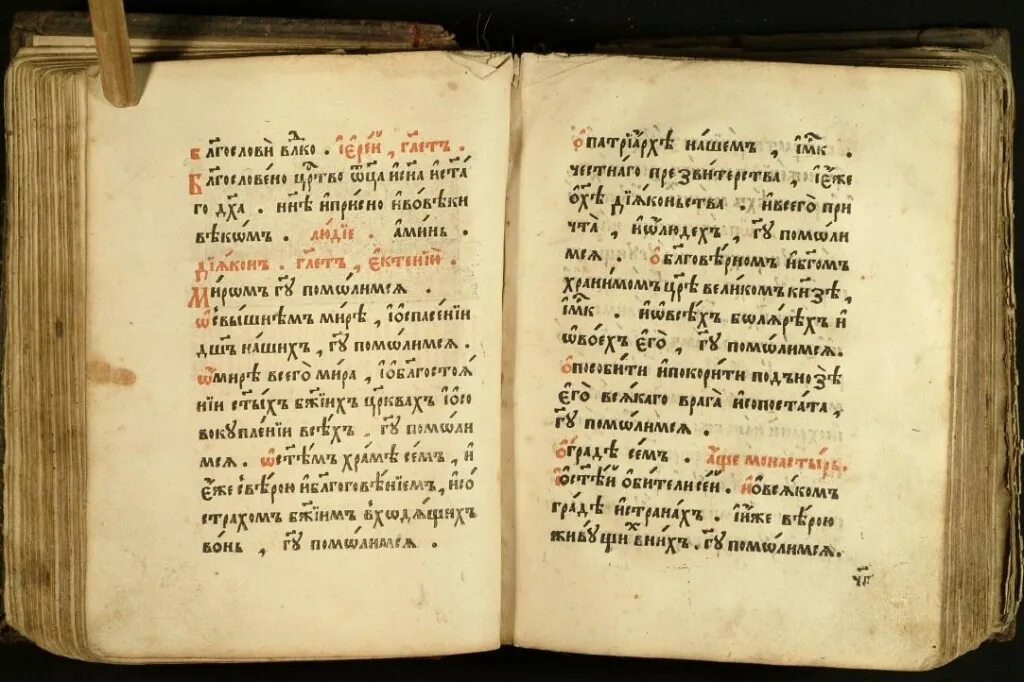 Бл҃гословѝ влⷣко . і҆ере́й , гл҃етъ .
Бл҃гослове́но црⷭ҇тво ѻ҆ц҃а и҆сн҃а и҆ст҃а́
го дх҃а . ны́нѣ и҆при́сно и҆вове́ки
вѣкѡ́мъ . лю́дїе . а҆ми́нь .
дїѧ́конъ . гл҃етъ , є҆ктенїю̀ .
Ми́ромъ гдⷭ҇у помо́лимсѧ .
ѡ҆свы́шнемъ ми́рѣ , і҆ѡ҆спасе́нїи
дш҃ъ на́шихъ , гдⷭ҇у помо́лимсѧ .
ѡ҆ми́рѣ всего̀ ми́ра , і҆ѡ҆бл҃госто́ѧ
нїи ст҃ы́хъ бж҃їихъ цр҃квахъ і҆ѡ҆со
вокупле́нїи всѣ́хъ , гдⷭ҇у помо́ли
мсѧ . ѡ҆ст҃ѣ́мъ хра́мѣ се́мъ , и҆
є҆́же свѣ́рою и҆бл҃гоговѣ́нїемъ , и҆со
стра́хомъ бж҃їимъ вхо́дѧщихъ
во́нь , гдⷭ҇у помо́лимсѧ .
ѻ҆патрїа́рхѣ на́шемъ , і҆мⷬ҇къ .
честна́го презви́терства , і҆є҆́же
ѻ҆хрⷭ҇тѣ̀ дїѧ́коньства . и҆всего̀ при
чта̀ , и҆ѡ҆лю́дехъ , гдⷭ҇у помо́ли
мсѧ . ѻ҆бл҃говѣ́рномъ и҆бг҃омъ
храни́момъ цр҃ѣ̀ вели́комъ кн҃зѣ ,
і҆мⷬ҇къ . и҆ѡ҆всѣ́хъ болѧ́рѣхъ и҆
ѡ҆во́ехъ є҆го̀ , гдⷭ҇у помо́лимсѧ .
ѻ҆пособи́ти и҆покори́ти подъно́зѣ
є҆го̀ всѧ́каго врага̀ и҆сопоста́та ,
гдⷭ҇у помо́лимсѧ .
ѻ҆гра́дѣ се́мъ . а҆́ще монасты́рь .
ѻ҆ст҃ѣ́й ѻ҆би́тели се́й . и҆ѻ҆всѧ́комъ
гра́дѣ и҆страна́хъ . і҆и҆́же вѣ́рою
живу́щихъ вни́хъ . гдⷭ҇у помо́лимсѧ .